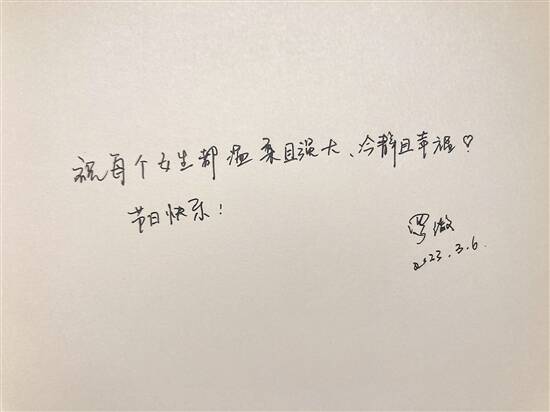 祝每个女生都温柔且强大、冷静且幸福♡
节日快乐！
罗微
2023.3.6.